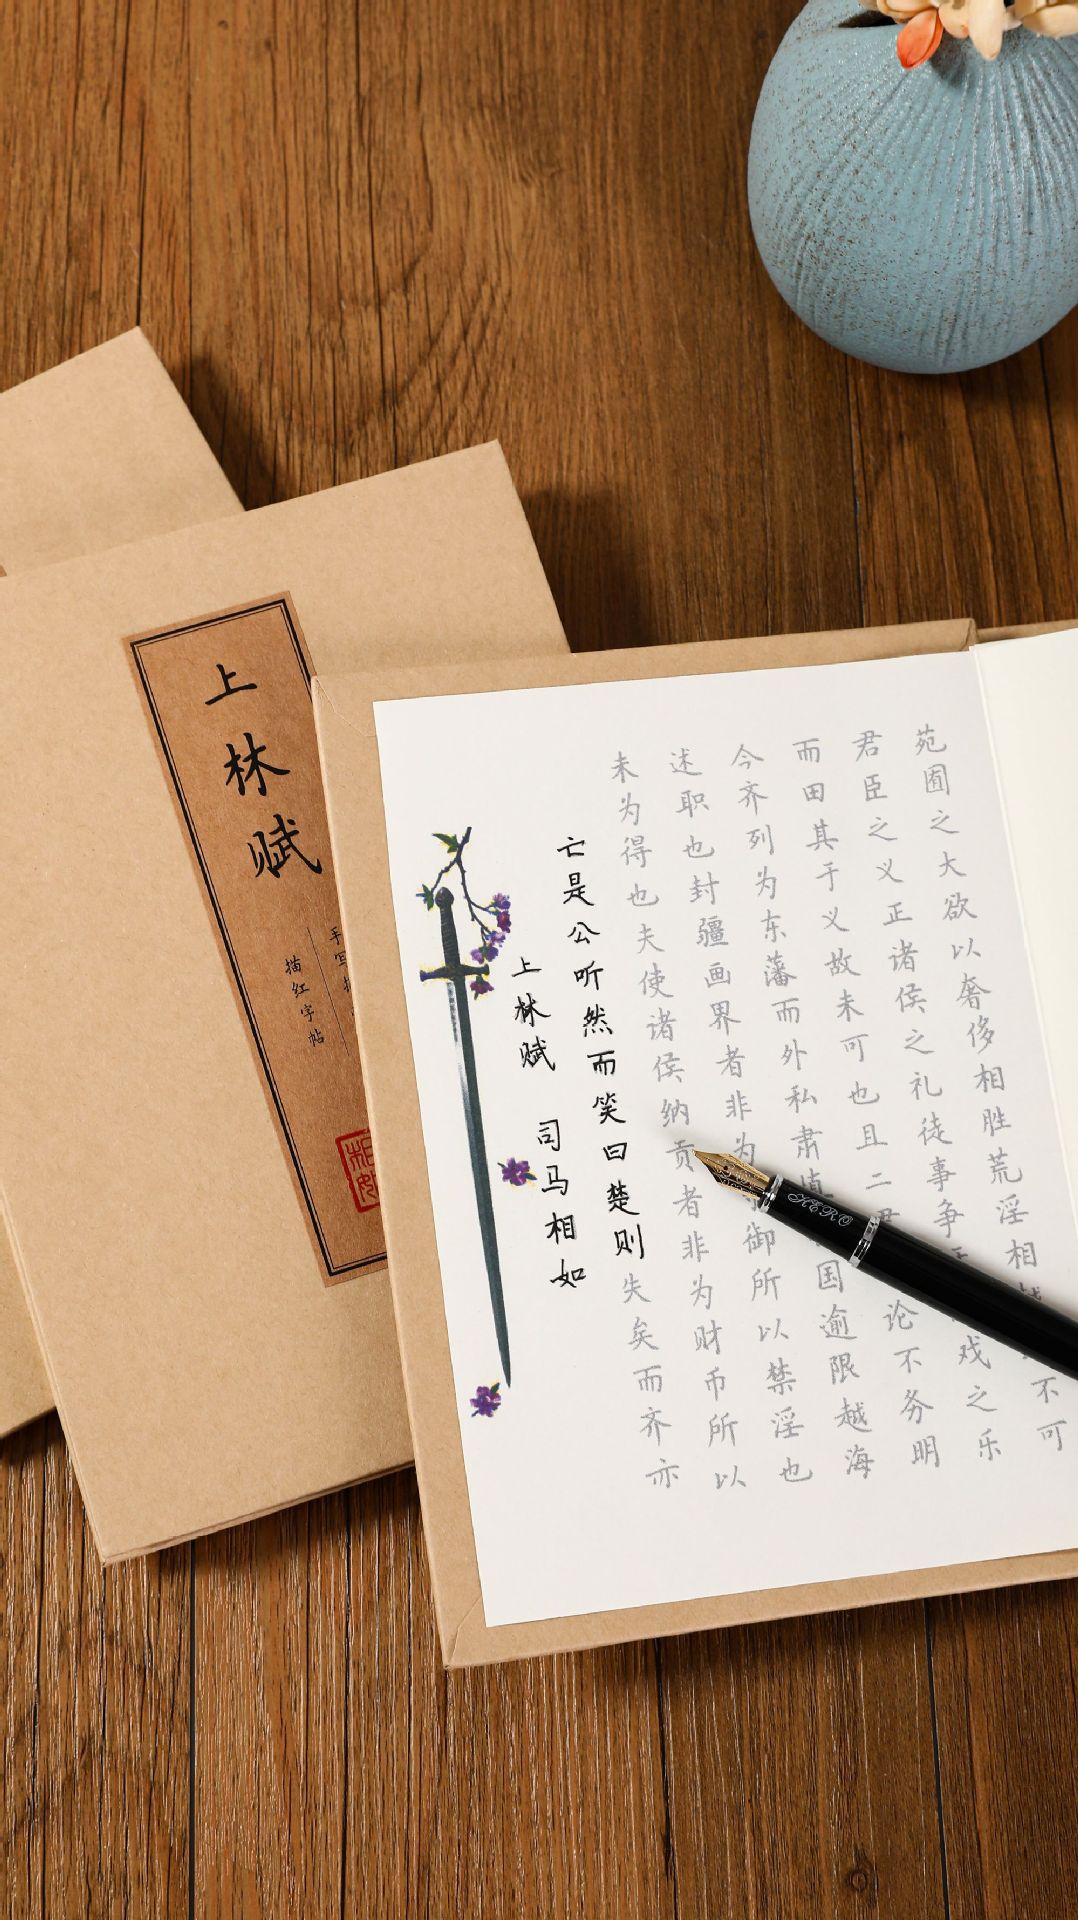 上林赋
手写
描红字帖
上林赋 司马相如
亡是公听然而笑曰楚则失矣而齐亦
未为得也夫使诸侯纳贡者非为财币所以
述职也封疆画界者非为御所以禁淫也
今齐列为东藩而外私肃国逾限越海
而田其于义故未可也且二论不务明
君臣之义正诸侯之礼徒事争戏之乐
苑囿之大欲以奢侈相胜荒淫相不可
HERO